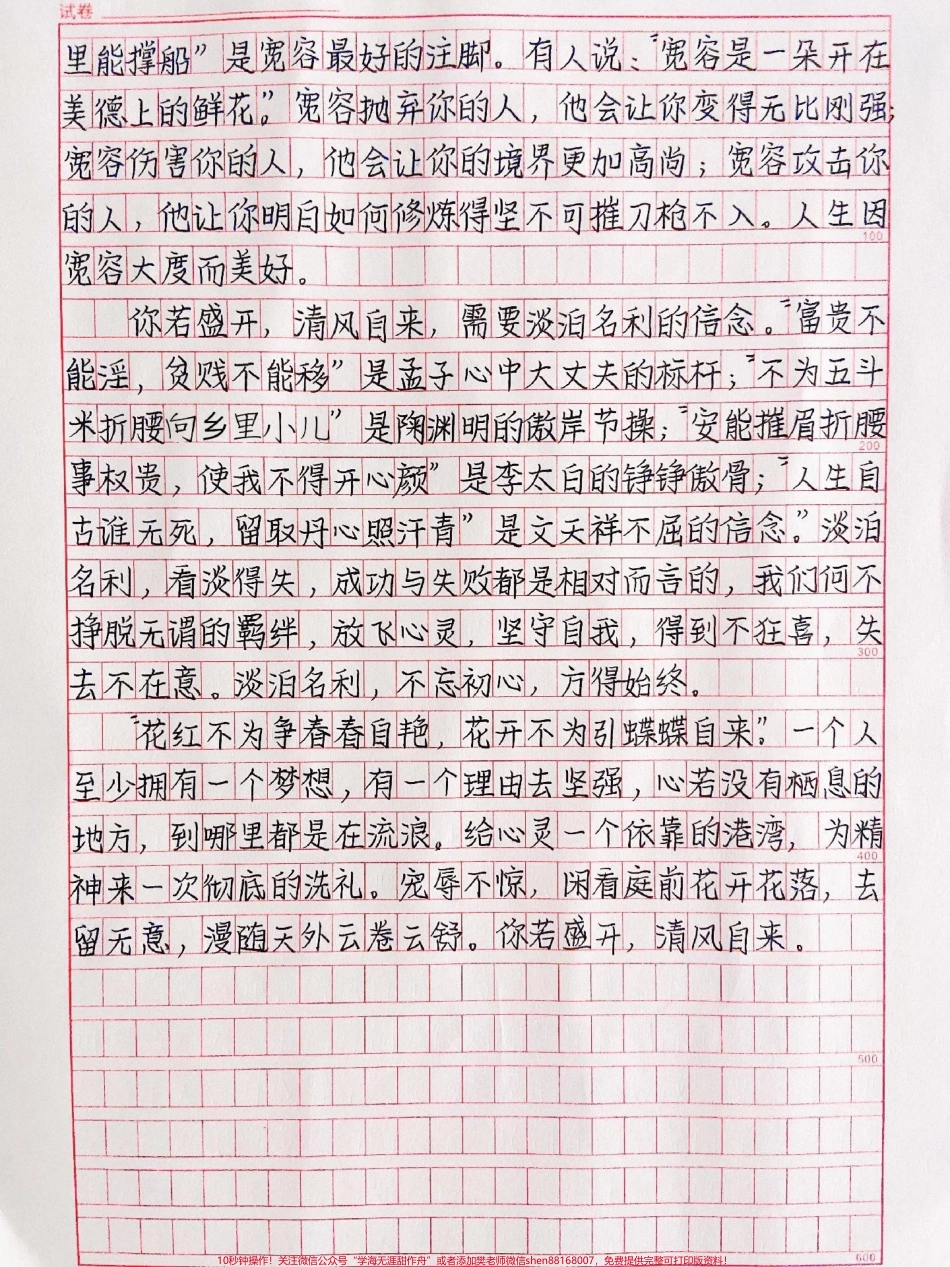 试卷
里能撑船”是宽容最好的注脚。有人说：“宽容是一朵开在
美德上的鲜花”。宽容抛弃你的人，他会让你变得无比刚强；
宽容伤害你的人，他会让你的境界更加高尚；宽容攻击你
的人，他让你明白如何修炼得坚不可摧刀枪不入。人生因
100
宽容大度而美好。
你若盛开，清风自来，需要淡泊名利的信念。“富贵不
能淫，贫贱不能移”是孟子心中大丈夫的标杆；“不为五斗
米折腰向乡里小儿”是陶渊明的傲岸节操；“安能摧眉折腰
200
事权贵，使我不得开心颜”是李太白的铮铮傲骨；“人生自
古谁无死，留取丹心照汗青”是文天祥不屈的信念。”淡泊
名利，看淡得失，成功与失败都是相对而言的，我们何不
挣脱无谓的羁绊，放飞心灵，坚守自我，得到不狂喜，失
300
去不在意。淡泊名利，不忘初心，方得始终。
“花红不为争春春自艳，花开不为引蝶蝶自来”。一个人
至少拥有一个梦想，有一个理由去坚强，心若没有栖息的
地方，到哪里都是在流浪。给心灵一个依靠的港湾，为精
400
神来一次彻底的洗礼。宠辱不惊，闲看庭前花开花落，去
留无意，漫随天外云卷云舒。你若盛开，清风自来。
500
600
10秒钟操作！关注微信公众号“学海无涯甜作舟”或者添加樊老师微信shen88168007，免费提供完整可打印版资料！